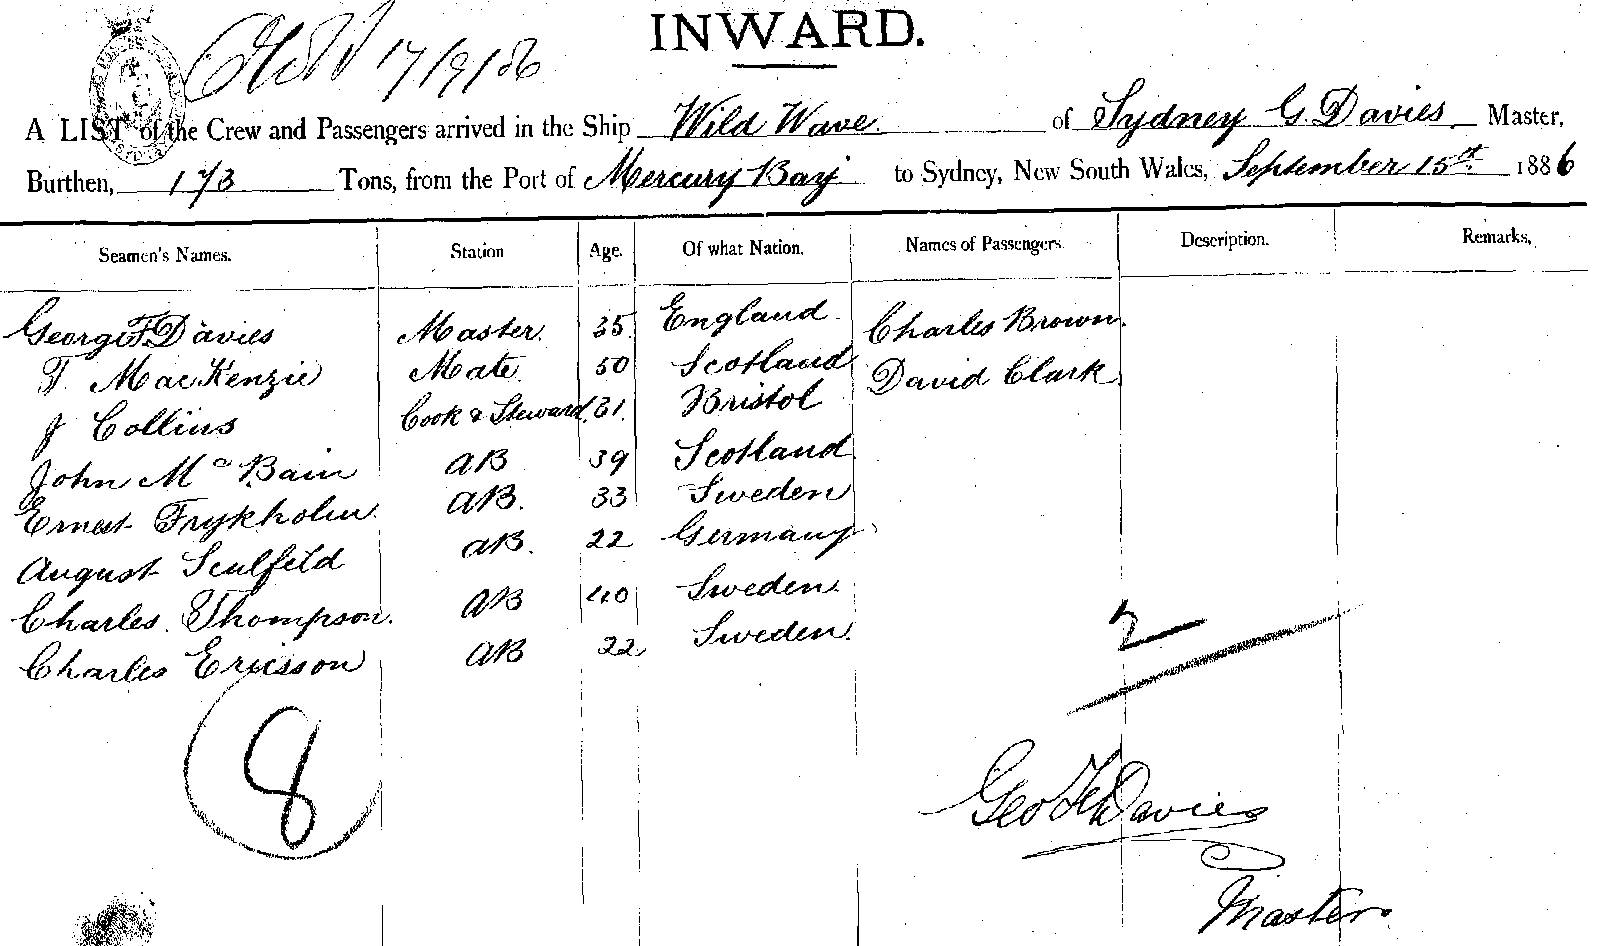 INWARD.
17/9/86
A LIST of the Crew and Passengers arrived in the Ship Wild Wave of Sydney G. Davies Master,
Burthen, 173 Tons, from the Port of Mercury Bay to Sydney, New South Wales, September 15th 1886
Seamen's Names. Station Age. Of what Nation. Names of Passengers. Description. Remarks.
George F. Davies Master. 35 England Charles Brown.
T. MacKenzie Mate. 50 Scotland David Clark
J Collins Cook & Steward. 31. Bristol
John Mc Bain AB 39 Scotland
Ernest Frykholm AB. 33 Sweden
August AB. 22 Germany
Charles. Thompson. AB 40 Sweden.
Charles Ericsson AB 22 Sweden.
2
8
Geo Davies
Master.